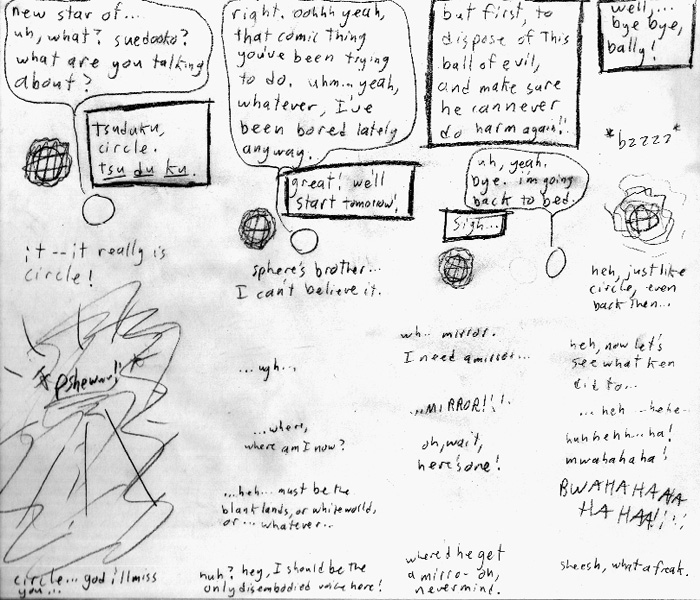 new star of...
uh, what? suedooko?
what are you talking
about?
tsuduku,
circle.
tsu du ku.
it -- it really is
circle!
*pshewww!!*
circle... god i'll miss
you...
right. oohhh yeah,
that comic thing
you've been trying
to do. uhm... yeah,
whatever, I've
been bored lately
anyway.
great! we'll
start tomorrow!
sphere's brother...
I can't believe it.
...ugh...
...where,
where am I now?
...heh... must be the
blank lands, or whiteworld,
or... whatever...
huh? hey, I should be the
only disembodied voice here!
but first, to
dispose of this
ball of evil,
and make sure
he can never
do harm again!!
uh, yeah.
bye. i'm going
back to bed.
sigh...
wh.. mirror.
I need a mirror...
...MIRROR!!!
oh, wait,
here's one!
where'd he get
a mirro- oh,
nevermind.
well,...
bye bye,
bally!
*bzzzz*
heh, just like
circle, even
back then...
heh, now let's
see what ken
did to...
... heh ...hehe..
huhhehh...ha!
mwahahaha!
BWAHAHAHA
HA HAA!!!!
sheesh, what a freak.